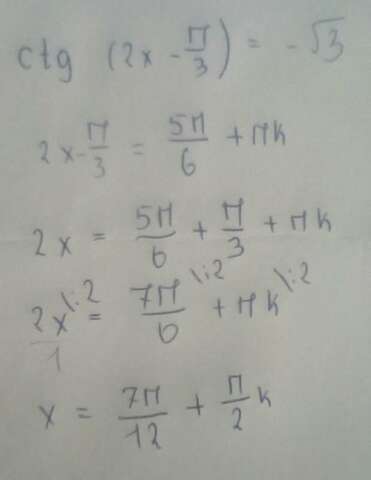 ctg (2x - π/3) = -√3
2x - π/3 = 5π/6 + πk
2x = 5π/6 + π/3 + πk
2x/1 \:2 = 7π/6 \:2 + πk \:2
x = 7π/12 + π/2 k